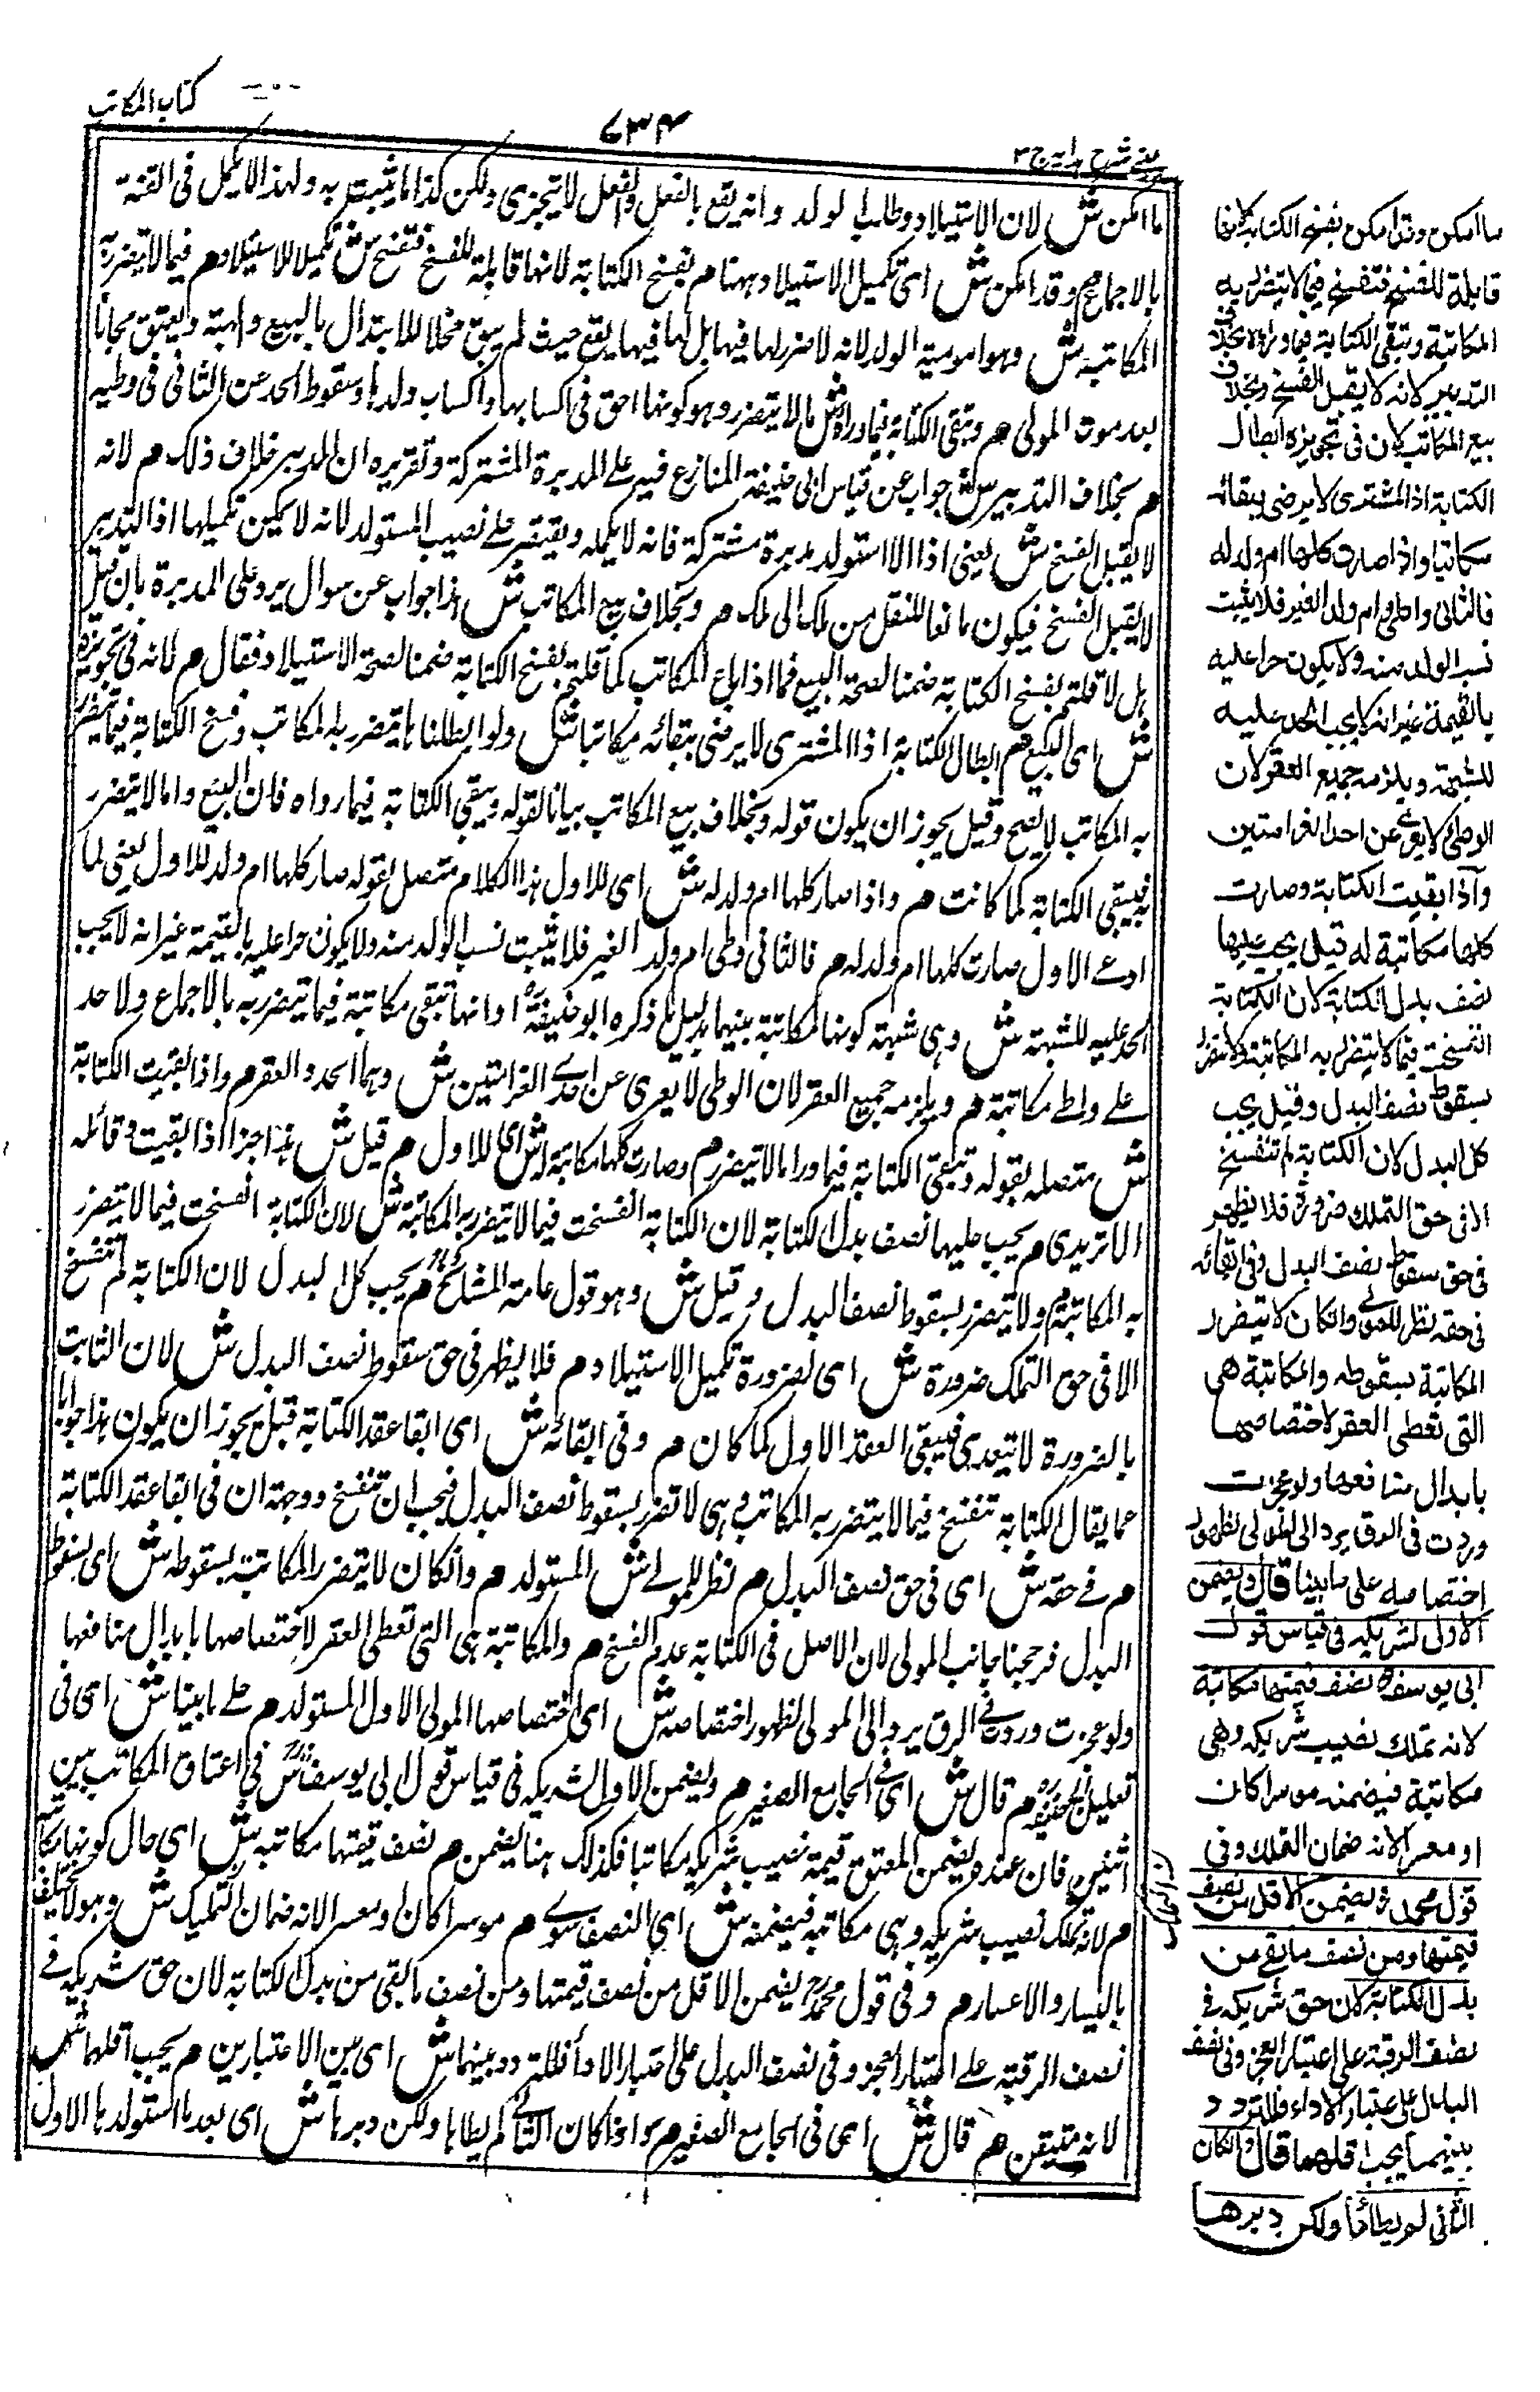 كتاب المكاتب
٧٣٤
عينى شرح هداية ج ٣
ما امكن ش لان الاستيلاد وطلب الولد وانه يقع بالفعل والفعل لا يتجزى ولكن كذا ما يثبت به ولهذا لا يكمل فى القنة
بالاجماع م وقد امكن ش اى تكميل الاستيلاد ههنا م بفسخ الكتابة لانها قابلة للفسخ فتفسخ ش تكميلا للاستيلاد م فيما لا يتضرر به
المكاتبة ش وهو امومية الولد لانه لا ضرر لها فيها بل لها فيها يقع حيث لم يبق محلا للابتدال بالبيع والهبة ويعتق مجانا
بعد موت المولى م وتبقى الكتابة فيما وراءه ش ما لا يتضرر وهو كونها احق فى اكسابها واكساب ولدها وسقوط الحد عن الثانى فى وطيه
م بخلاف التدبير ش جواب عن قياس ابى حنيفة المنازع فيه على المدبرة المشتركة وتقريره ان المدبر خلاف ذلك م لانه
لا يقبل الفسخ ش يعنى اذا استولد مدبرة مشتركة فانه لا يكمله ويقتصر على نصيب المستولد لانه لا يمكن تكميلها اذ التدبير
لا يقبل الفسخ فيكون مانعا للنقل من ملك الى ملك م وبخلاف بيع المكاتب ش هذا جواب عن سوال يرد على المدبرة بان قيل
هل لا قلتم بفسخ الكتابة ضمنا لصحة البيع فما اذا باع المكاتب كما قلتم بفسخ الكتابة ضمنا لصحة الاستيلاد فقال م لانه فى تجويزه
ش اى البيع م ابطال الكتابة اذ المشترى لا يرضى ببقائه مكاتبا ش ولو ابطلنا ها يتضرر به المكاتب وفسخ الكتابة فيما يتضرر
به المكاتب لا يصح وقيل يجوز ان يكون قوله وبخلاف بيع المكاتب بيانا لقوله ويبقى الكتابة فيما رواه فان البيع واما لا يتضرر
به فيبقى الكتابة كما كانت م واذا صار كلها ام ولد له ش اى للاول هذا الكلام متصل بقوله صار كلها ام ولد للاول يعنى لما
ادعى الاول صارت كلها ام ولد له م فالثانى وطى ام ولد الغير فلا يثبت نسب الولد منه ولا يكون حرا عليه بالقيمة غير انه لا يجب
الحد عليه للشبهة ش وهى شبهة كونها مكاتبة بينهما بدليل ما ذكره ابو حنيفة رح اوانها تبقى مكاتبة فيما يتضرر به بالاجماع ولا حد
على واطى مكاتبته م ويلزمه جميع العقر لان الوطى لا يعرى عن احدى الغرامتين ش وهما الحد والعقر م واذا بقيت الكتابة
ش متصلة بقوله وتبقى الكتابة فيما وراء ما لا يتضرر م وصارت كلها مكاتبة له ش اى للاول م قيل ش هذا جزا اذا بقيت وقائله
الماتريدى م يجب عليها نصف بدل الكتابة لان الكتابة انفسخت فيما لا يتضرر به المكاتبة ش لان الكتابة انفسخت فيما لا يتضرر
به المكاتبة م ولا تتضرر بسقوط نصف البدل وقيل ش وهو قول عامة المشائخ رح م يجب كل البدل لان الكتابة لم تنفسخ
الا فى حق التملك ضرورة ش اى لضرورة تكميل الاستيلاد م فلا يظهر فى حق سقوط نصف البدل ش لان الثابت
بالضرورة لا يتعدى فيبقى العقد الاول كما كان م وفى ابقائه ش اى ابقا عقد الكتابة قبل يجوز ان يكون هذا جوابا
عما يقال الكتابة تنفسخ فيما لا يتضرر به المكاتب وهى لا تضرر بسقوط نصف البدل فيجب ان تنفسخ ووجهه ان فى ابقا عقد الكتابة
م فى حقه ش اى فى حق نصف البدل م نظر للمولى ش المستولد م وان كان لا يتضرر المكاتبة بسقوطه ش اى بسقوط
البدل فرجحنا جانب المولى لان الاصل فى الكتابة عدم الفسخ م والمكاتبة هى التى تعطى العقر لاختصاصها بابدال منافعها
ولو عجزت وردت فى الرق يرد الى المولى لظهور اختصاصه ش اى اختصاصها المولى الاول المستولد م على ما بينا ش اى فى
تعليل ابى حنيفة رح م قال ش اى فى الجامع الصغير م ويضمن الاول لشريكه فى قياس قول ابى يوسف رح ش فى اعتاق المكاتب بين
اثنين فان عنده يضمن المعتق قيمة نصيب شريكه مكاتبا فكذلك هنا يضمن م نصف قيمتها مكاتبة ش اى حال كونها مكاتبة
م لانه تملك نصيب شريكه وهى مكاتبة فيضمنه ش اى النصف سوى م موسرا كان او معسرا لانه ضمان التملك ش وهو لا يختلف
باليسار والاعسار م وفى قول محمد رح يضمن الاقل من نصف قيمتها ومن نصف ما بقى من بدل الكتابة لان حق شريكه فى
نصف الرقبة على اعتبار العجز وفى نصف البدل على اعتبار الاداء فللتردد بينهما ش اى بين الاعتبارين م يجب اقلهما ش
لانه متيقن م قال ش اى فى الجامع الصغير م واذا كان الثانى لم يطاها ولكن دبرها ش اى بعد ما استولدها الاول
ما امكن وقد امكن بفسخ الكتابة لانها
قابلة للفسخ فتفسخ فيما لا يتضرر به
المكاتبة وتبقى الكتابة فيما وراءه بخلاف
التدبير لانه لا يقبل الفسخ وبخلاف
بيع المكاتب لان فى تجويزه ابطال
الكتابة اذ المشترى لا يرضى ببقائه
مكاتبا واذا صارت كلها ام ولد له
فالثانى واطى ام ولد الغير فلا يثبت
نسب الولد منه ولا يكون حرا عليه
بالقيمة غير انه لا يجب الحد عليه
للشبهة ويلزمه جميع العقر لان
الوطئ لا يعرى عن احد الغرامتين
واذا بقيت الكتابة وصارت
كلها مكاتبة له قيل يجب عليها
نصف بدل الكتابة لان الكتابة
انفسخت فيما لا يتضرر به المكاتبة ولا تتضرر
بسقوط نصف البدل وقيل يجب
كل البدل لان الكتابة لم تنفسخ
الا فى حق التملك ضرورة فلا يظهر
فى حق سقوط نصف البدل وفى ابقائه
فى حقه نظر للمولى وان كان لا تتضرر
المكاتبة بسقوطه والمكاتبة هى
التى تعطى العقر لاختصاصها
بابدال منافعها ولو عجزت
وردت فى الرق يرد الى المولى لظهور
اختصاصه على ما بينا قال ويضمن
الاول لشريكه فى قياس قول
ابى يوسف رح نصف قيمتها مكاتبة
لانه تملك نصيب شريكه وهى
مكاتبة فيضمنه موسرا كان
او معسرا لانه ضمان التملك وفى
قول محمد رح يضمن الاقل من نصف
قيمتها ومن نصف ما بقى من
بدل الكتابة لان حق شريكه فى
نصف الرقبة على اعتبار العجز وفى نصف
البدل على اعتبار الاداء فللتردد
بينهما يجب اقلهما قال وان كان
الثانى لم يطأها ولكن دبرها